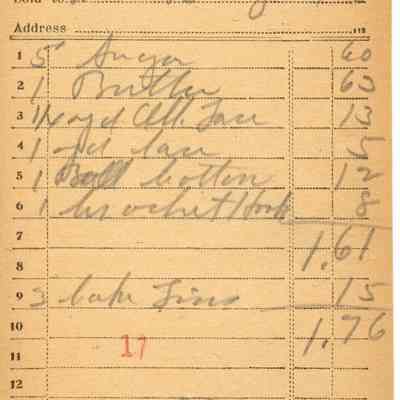 Address
1 5 Sugar 60
2 1 Butter 63
3 1/4 yd All. Lace 13
4 1 yd lace 5
5 1 Ball Cotton 12
6 1 Crochet Hook 8
7 1.61
8
9 3 Cake Tins 15
10 1.76
11 17
12